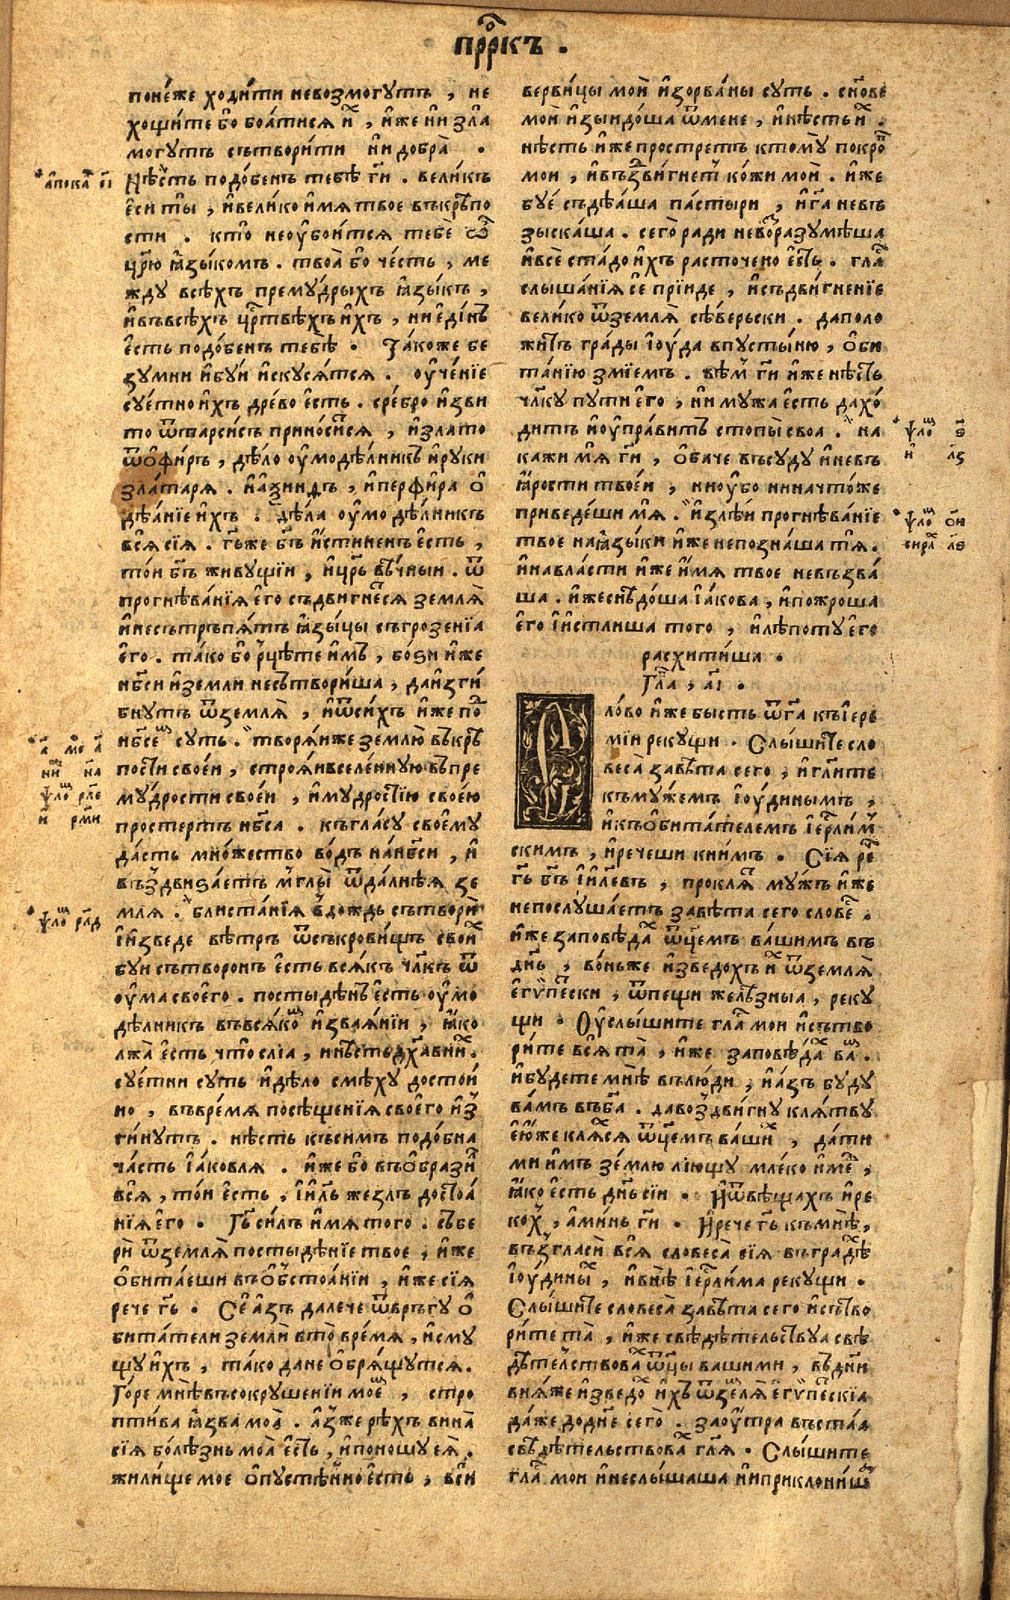 прⷪ҇ркъ .
поне́же ходи́ти невозмогутъ , не
хощи́те бо боа́тися и҆х , и҆же ни зла
могутъ сътвори́ти ни добра̀ .
а҆покаⷧ҇ е҃і
Нѣ́сть подо́бенъ тебѣ̀ гн҃и . вели́къ
е҆си ты̀ , и҆вели́ко и҆мя твое въкрѣ́по
сти . кто̀ неоу҆бои́тся тебѐ ѽ
цр҃ю ꙗ҆зы́комъ . твоа̀ бо че́сть , ме
жду всѣ́хъ прему́дрыхъ ꙗ҆зы́къ ,
и҆въвсѣ́хъ црⷭ҇твѣхъ и҆хъ , ни е҆ди́нъ
е҆сть подо́бенъ тебѣ̀ . Та́коже бе
зумни и҆буи и҆скуся́тся . оу҆че́нїе
суе́тно и҆хъ дре́во е҆сть . сребро̀ и҆зви
то ѿтарси́съ прино́сится , и҆зла́то
ѿо҆фи́ръ , дѣ́ло оу҆модѣ́лникъ и҆руки
зла́таря . и҆а҆кинѳъ , и҆перфи́ра о҆
дѣа́нїе и҆хъ . дѣ́ла оу҆мо дѣ́лникъ
вся̀ сїя̀ . гь҃же бг҃ъ и҆стиненъ е҆сть ,
то́и бг҃ъ живу́щїи , и҆цр҃ь вѣ́чныи . ѿ
прогнѣва́нїя е҆го съдвигне́ся земля̀
и҆несътръпя́тъ ꙗ҆зы́цы съгрозенїа
е҆го . та́ко бо рцѣ́те и҆мъ , бо́ѕи и҆же
нб҃си и҆земли несътвори́ша , даи҆зги
бнутъ ѿземля̀ , и҆ѿси́хъ и҆же поⷣ
нб҃семъ суть . творя́и҆же землю̀ въкрѣ
пости свое́и , строя́и҆вселе́нную въпре
му́дрости свое́и , и҆му́дростїю свое́ю
простеръ нб҃са . къгла́су своему
да́стъ мно́жество во́дъ нанб҃си , и҆
въздвиѕа́етъ мъглы̀ ѿда́лнѣя зе
мля . блиста́нїя въдо́ждь сътвори
и҆и҆зведе вѣ́тръ ѿсъкро́вищъ свои́х
буи сътворенъ е҆сть всякъ чл҃къ ѿ
оу҆ма своего . постыдѣ́нъ е҆сть оу҆мо
дѣ́лникъ въвся́комъ и҆звая́нїи , ꙗ҆ко
лжа̀ е҆сть что̀ слїа ,
суе́тни суть и҆дѣло смѣ́ху досто́и
но , въвре́мя посѣще́нїя своего и҆з
ги́нутъ . нѣ́сть къси́мъ подо́бна
ча́сть і҆а́ковля . и҆же бо въо҆брази́
вся̀ , то́и е҆сть , і҆и҃ль жезлъ достоа́
нїя е҆го . Гь҃ си́лъ и҆мя того̀ . събе
рѝ ѿземля̀ постыдѣ́нїе твое , и҆же
о҆бита́еши въо҆бстоа́нїи , и҆же сїя
рече гь҃ . Се а҆зъ дале́че ѿвръгу о҆
бита́тели землѝ въто вре́мя , и҆сму
щу и҆хъ , та́ко дане о҆бря́щутся .
Го́ре мнѣ̀ въсокруше́нїи мое́мъ , стро
пти́ва ꙗ҆зва моа̀ . а҆зже рѣхъ вина̀
сїя боле́знь моа̀ е҆сть , и҆поношу ея̀ .
жили́ще мое о҆пустѣ́нно е҆сть , вси
а҃ мо́ѵ а҃
ни на
ѱалоⷨ рл҃е
и рм҃и
ѱалоⷨ рл҃д
верви́цы моѝ и҆зорва́ны суть . сн҃ове
моѝ и҆зыидо́ша ѿмене , и҆нѣсть и҆х .
нѣсть и҆же простретъ ктому̀ покро́въ
мои , и҆въздви́гнетъ ко́жи моѝ . и҆же
буе съдѣа́ша па́стыри , и҆га҃ невъ
зыска́ша . сего̀ ради невъоразумѣша
и҆все ста́до и҆хъ расточено̀ е҆сть . глⷭ҇а
слы́шанїя се прїиде , и҆съдви́гненїе
вели́ко ѿземля̀ сѣ́верьски . даполо
жи́тъ гра́ды і҆ю́да впусты́ню , о҆би
та́нїю змїемъ . вѣ́мъ гн҃и и҆же нѣ́сть
чл҃ку пути̑ е҆го , ни му́жа е҆сть дахо́
дитъ и҆оу҆пра́витъ стопы̀ своа . на
кажи мя гн҃и , о҆ба́че въсуду̀ и҆невъ
ꙗ҆рости твое́и , ниоу҆бо нинаучто́же
приведе́ши мя̀ . и҆злѣ́и прогнѣва́нїе
твое наꙗ҆зы́ки и҆же непозна́ша тя̀ .
и҆навла́сти и҆же и҆́мя твое невъзва́
ша . и҆жеснѣдо́ша і҆а́кова , и҆пожро́ша
е҆го и҆и҆стлиша того , и҆лѣ́поту е҆го
расхити́ша .
ѱалоⷨ ѕ҃
и л҃ѕ
ѱалоⷨ о҃и
сираⷯ л҃ѳ
Гл҃а , а҃і .
Сло́во и҆же бысть ѿга҃ къі҆ере
мїи рекущи . Слы́шите сло
веса̀ завѣ́та сего , и҆гл҃ите
къму́жемъ і҆ю́динымъ ,
и҆къо҆бита́телемъ і҆ерⷭ҇ли́м
скимъ , и҆рече́ши кни́мъ . Сїя̀ ре́ч
гь҃ бг҃ъ і҆и҃левъ , про́клят му́жъ и҆же
непослу́шаетъ завѣ́та сего словес .
и҆же заповѣ́дах ѿце́мъ ва́шимъ въ
дн҃ь , во́ньже и҆зведо́хъ и҆х ѿземля̀
е҆гѵ́петски , ѿпещи желѣ́зныа , реку
щи . Оу҆слы́шите глⷭ҇а мои и҆сътво
ри́те вся̀ та̀ , и҆же заповѣ́дах ваⷨ .
и҆бу́дете мнѣ̀ влю́ди , и҆а҆зъ буду
ва́мъ въбг҃а . давоздви́гну кля́тву
е҆юже кля́хся ѿце́мъ ва́шим , да́ти
ми и҆мъ зе́млю лїющу мле́ко и҆ме́д ,
ꙗ҆ко е҆сть дн҃ь сїи . И҆ѿвѣща́хъ и҆ре
ко́х , а҆ми́нь гн҃и . И҆рече гь҃ къмнѣ̀ ,
възгласѝ вся̀ словеса̀ сїя въгра́дѣ
і҆ю́дины́х , и҆внѣ̀ і҆ерⷭ҇ли́ма рекущи .
Слы́шите словеса̀ завѣ́та сего и҆сътво
ри́те та̀ , и҆же свѣдѣтельствуа свѣ
дѣтельствовах ѿцы̀ вашими , въдн҃и
вня́же и҆зведо́х и҆хъ ѿземля̀ е҆гѵ́петскїа
да́же додн҃е сего̀ . заоу҆тра въста́а
свѣдѣ́тельствовах гл҃я . Слы́шите
глⷭ҇а мои и҆неслы́шаша ниприклони́ша